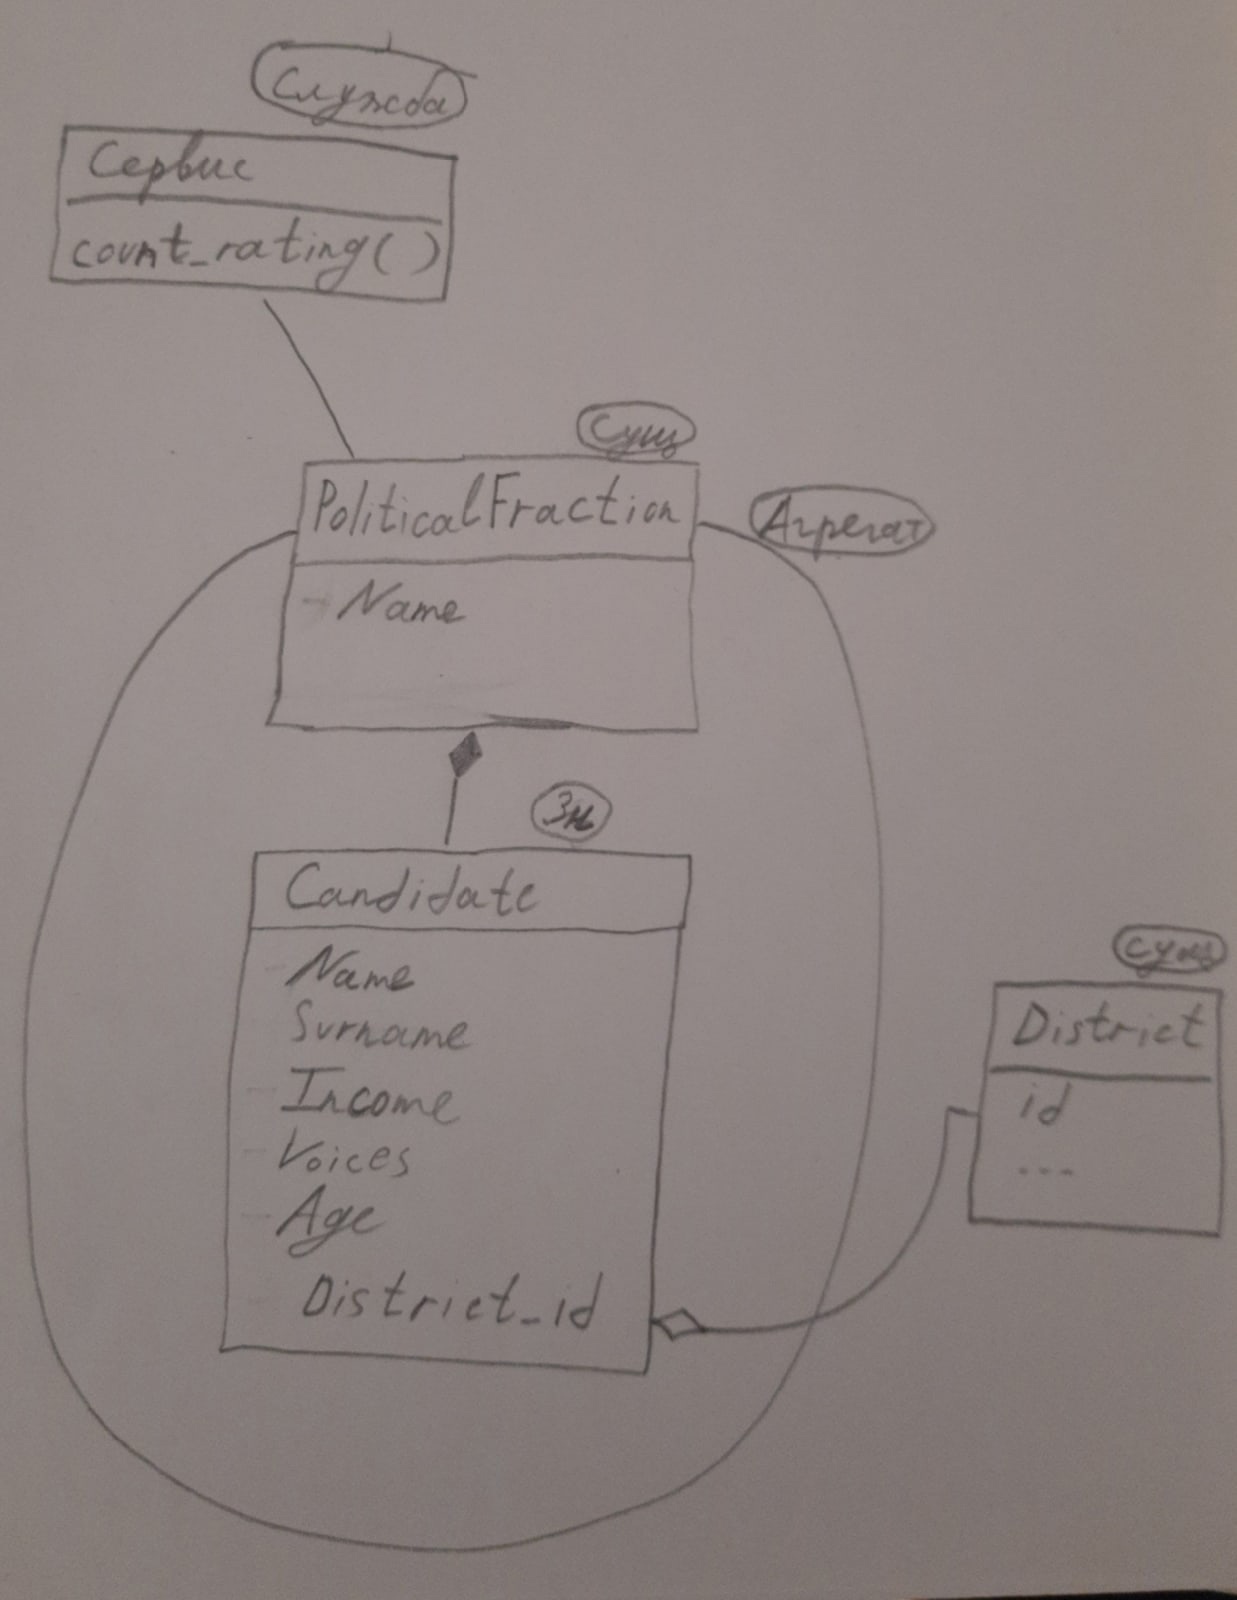 Служба
Сервис
count_rating()
Сущ
PoliticalFraction
Агрегат
- Name
Зн
Candidate
- Name
Surname
- Income
- Voices
- Age
District_id
Сущ
District
id
...